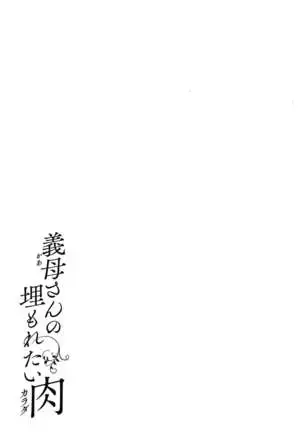 義母さんの
かあ
埋もれたい
肉
カラダ